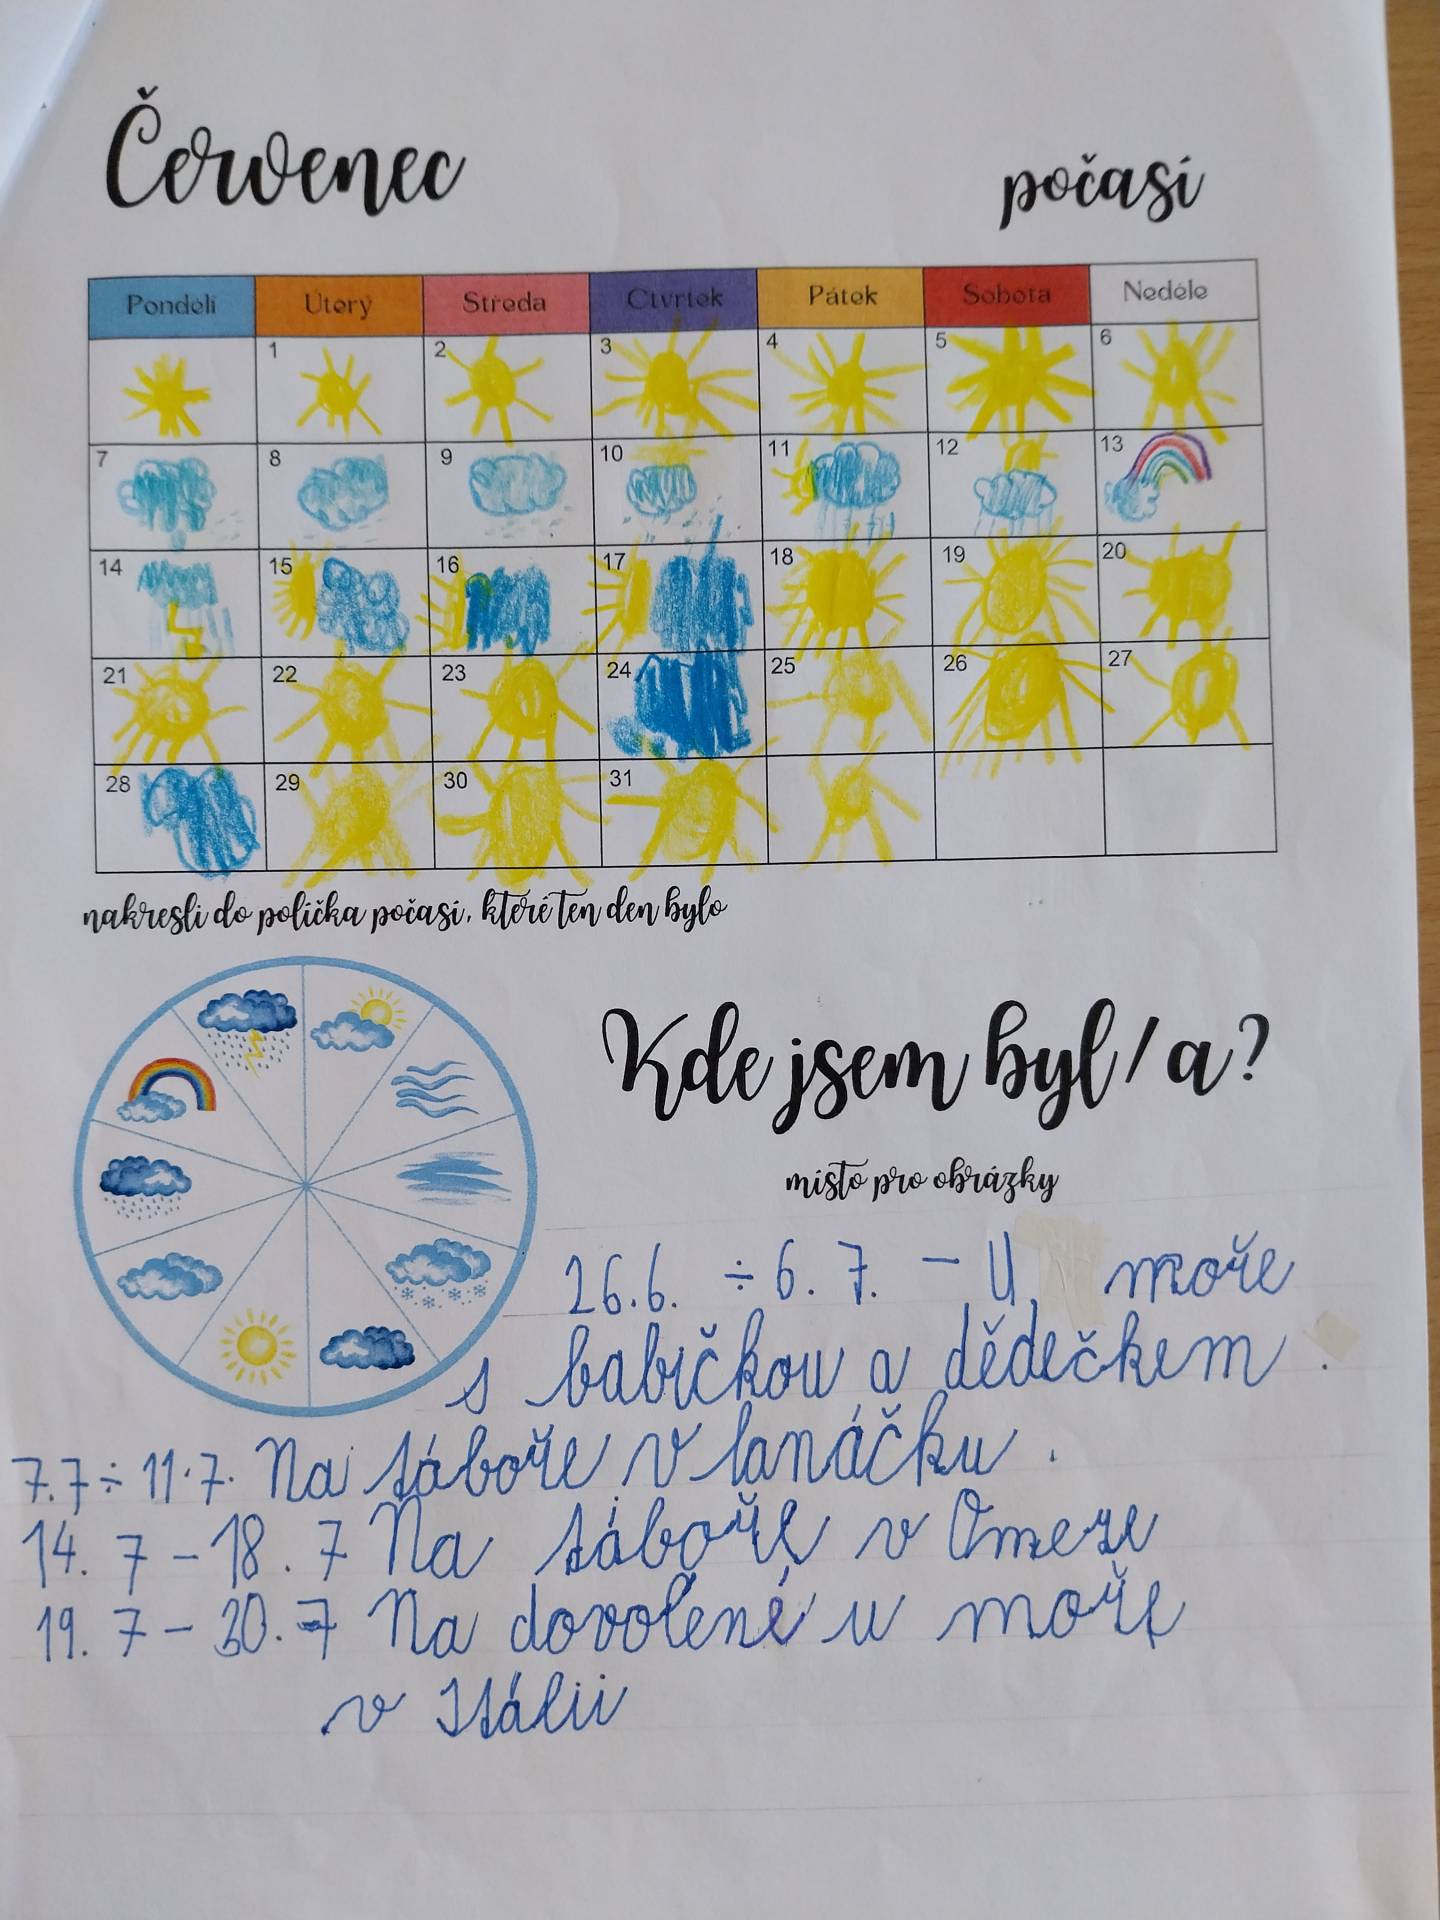 Červenec
počasí
Pondělí Úterý Středa Čtvrtek Pátek Sobota Neděle
1 2 3 4 5 6
7 8 9 10 11 12 13
14 15 16 17 18 19 20
21 22 23 24 25 26 27
28 29 30 31
nakresli do políčka počasí, které ten den bylo
Kde jsem byl/a?
místo pro obrázky
26.6. ÷ 6. 7. - U moře
s babičkou a dědečkem.
7.7 ÷ 11.7. Na táboře v lanáčku.
14. 7 - 18. 7 Na táboře v Omeze
19. 7 - 30. 7 Na dovolené u moře
v Itálii